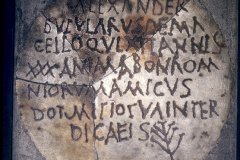 ALEXANDER
BVBVLARVS DE MA
CELLO ANNIS
XXX ANIMA BONA OM
NIORVM AMICVS
DORMITIO TVA INTER
DICAEIS